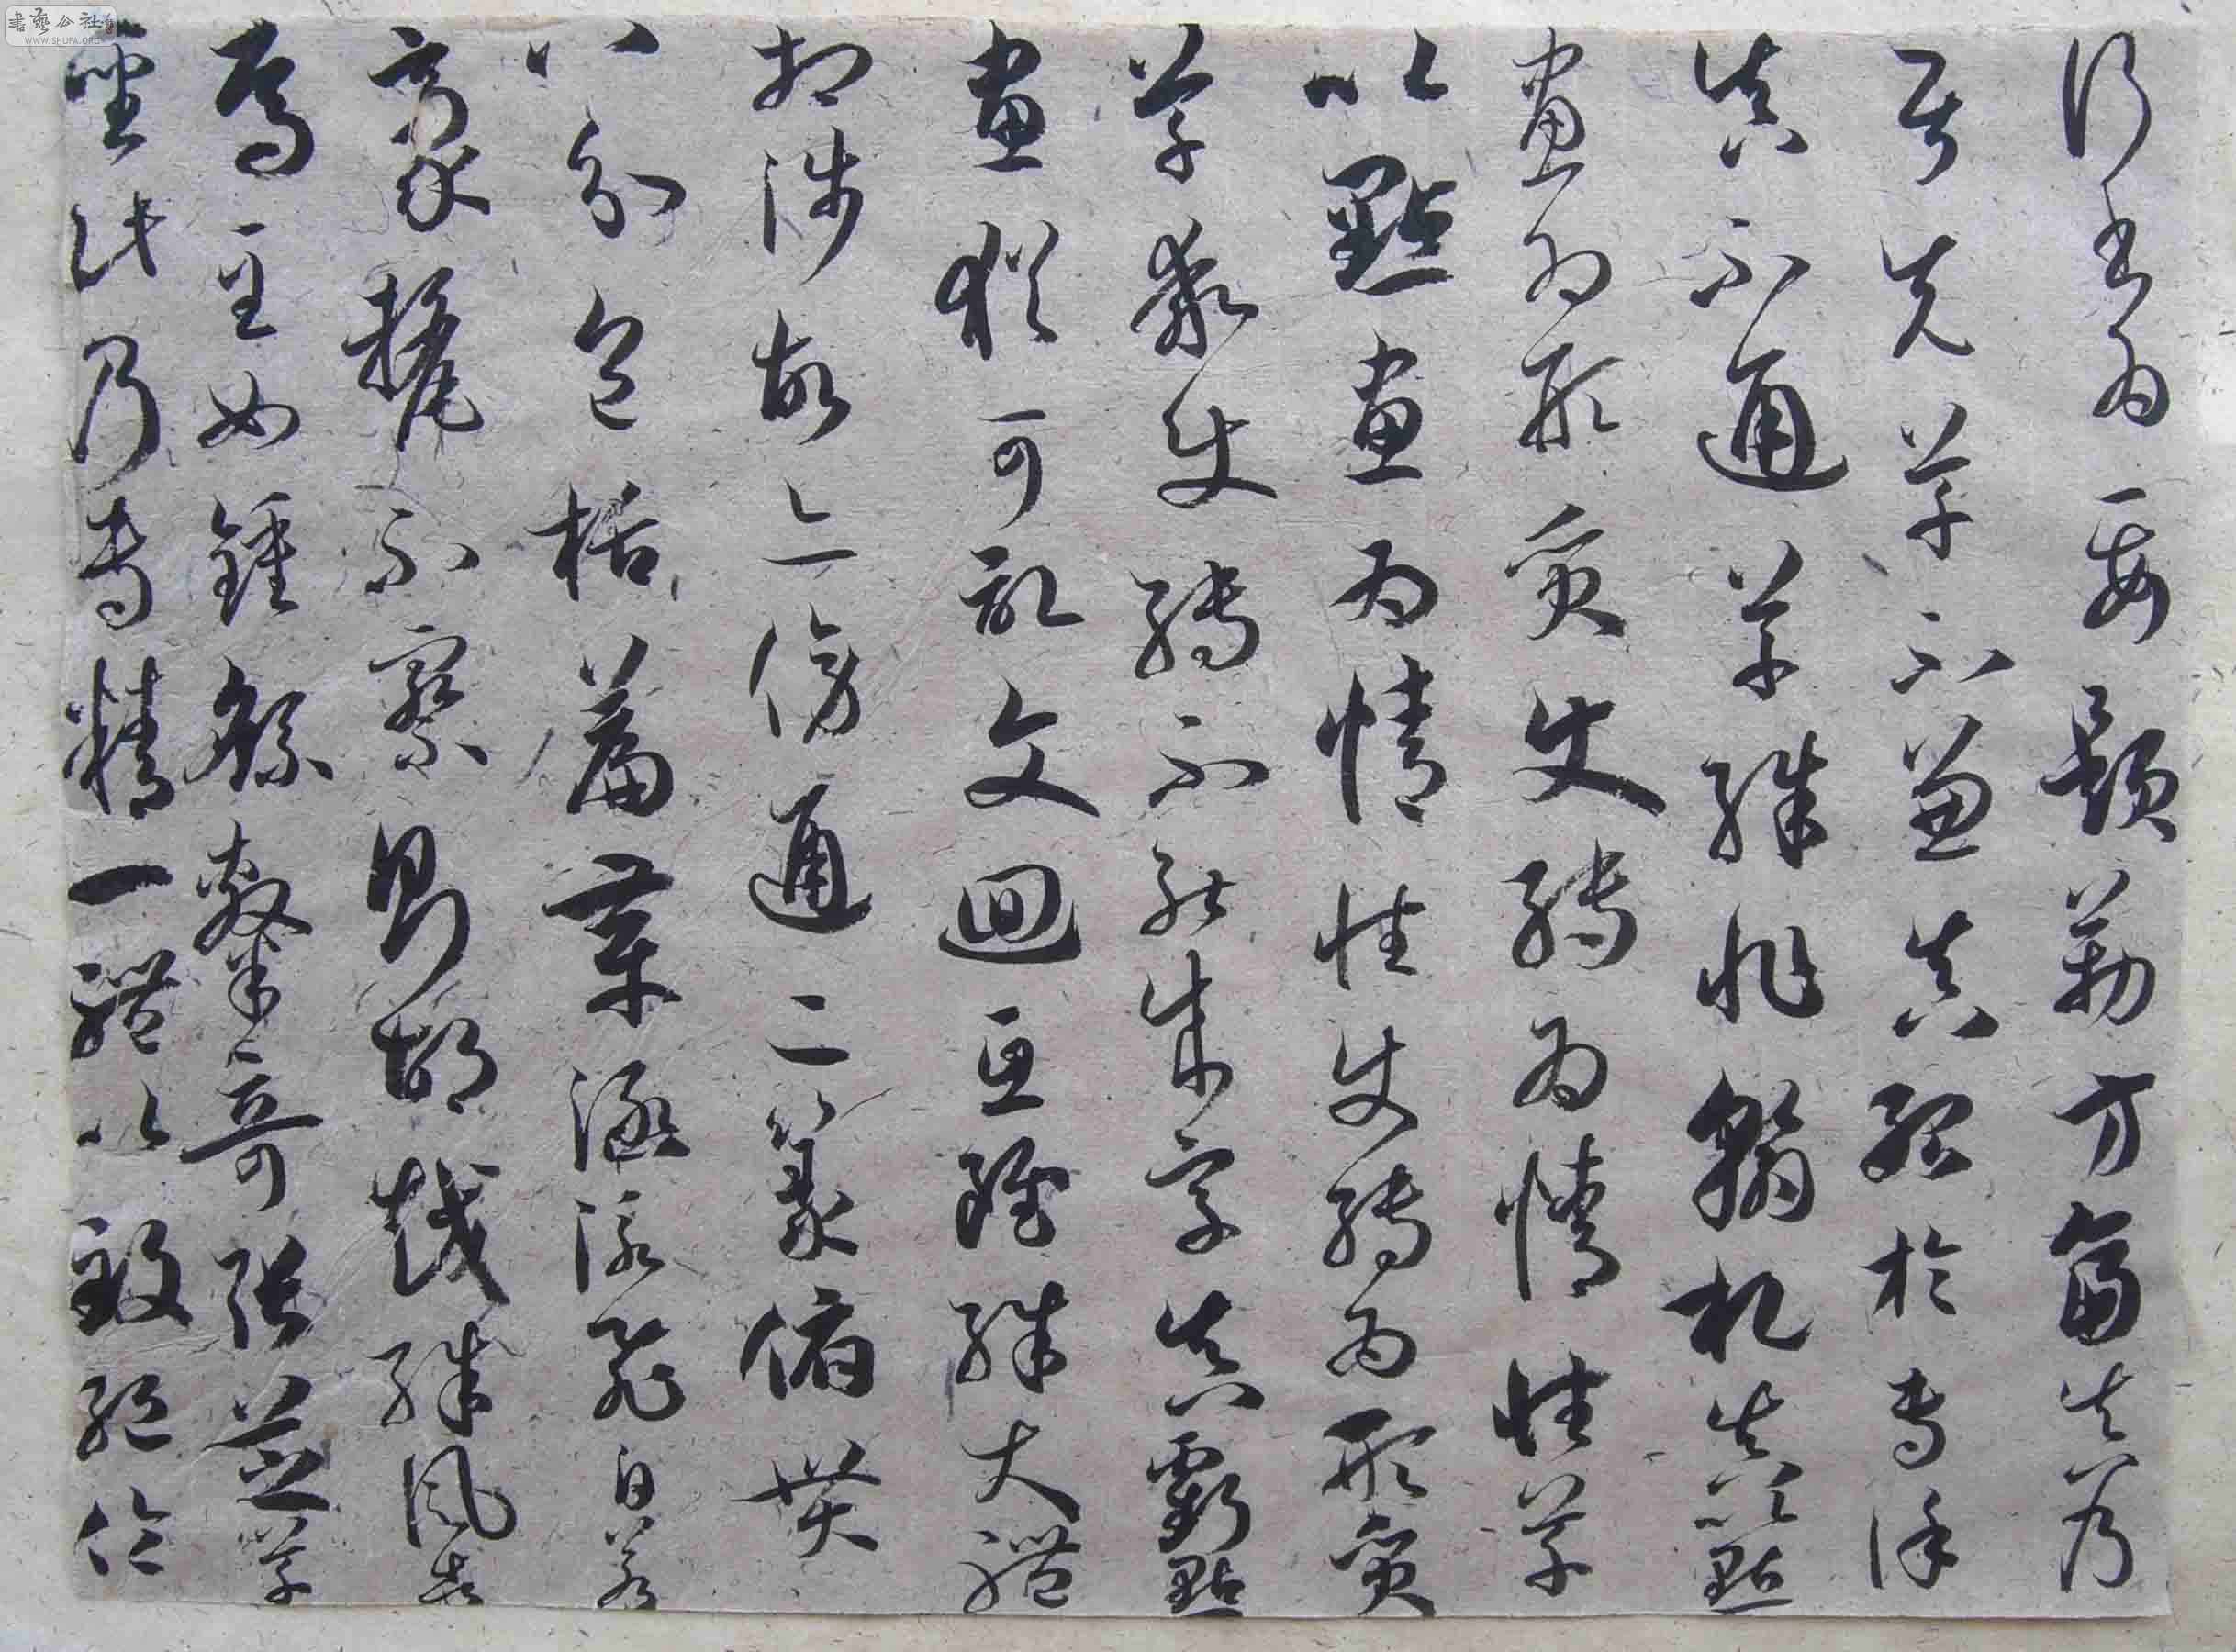 行書為要題勒方畐真乃
居先草不兼真殆於專謹
真不通草殊非翰札真以點
畫為形質使轉為情性草
以點畫為情性使轉為形質
草乖使轉不能成字真虧點
畫猶可記文迴互雖殊大體
相涉故亦傍通二篆俯貫
八分包括篇章涵泳飛白若
豪釐不察則胡越殊風者
焉至如鍾繇隸奇張芝草
聖此乃專精一體以致絕倫
書藝公社
WWW.SHUFA.ORG